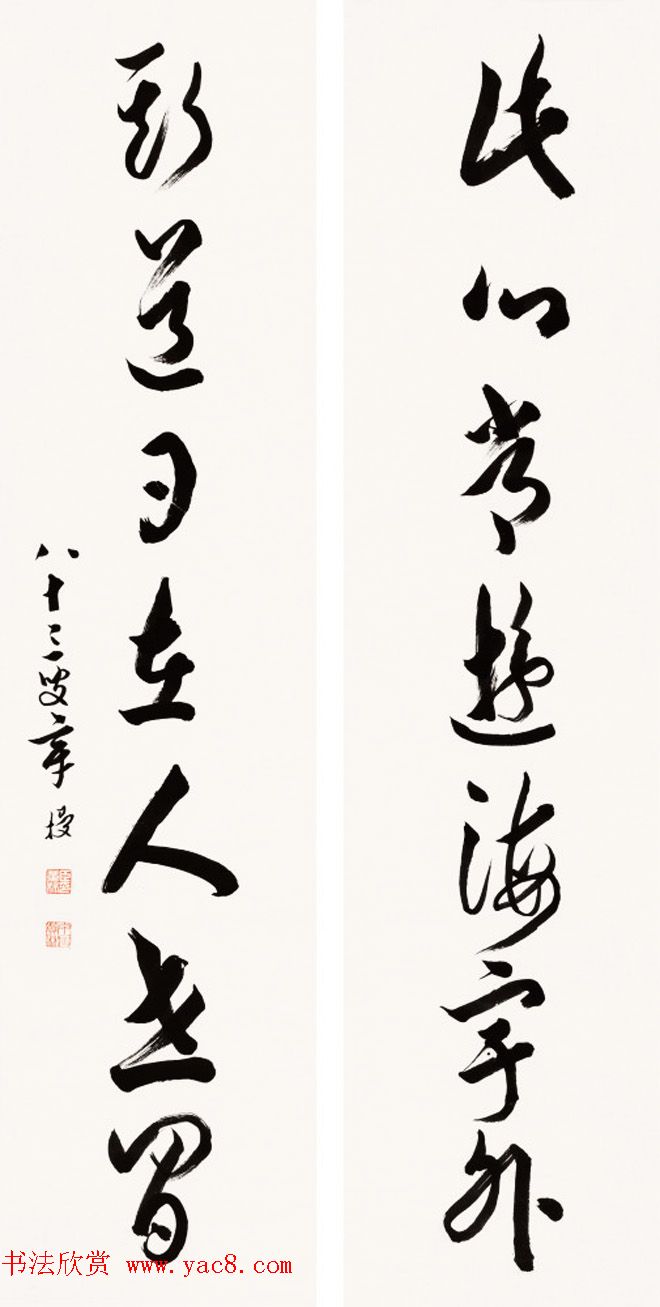 此心常遊海宇外
斯道日在人世間
八十三叟章梫
书法欣赏 www.yac8.com